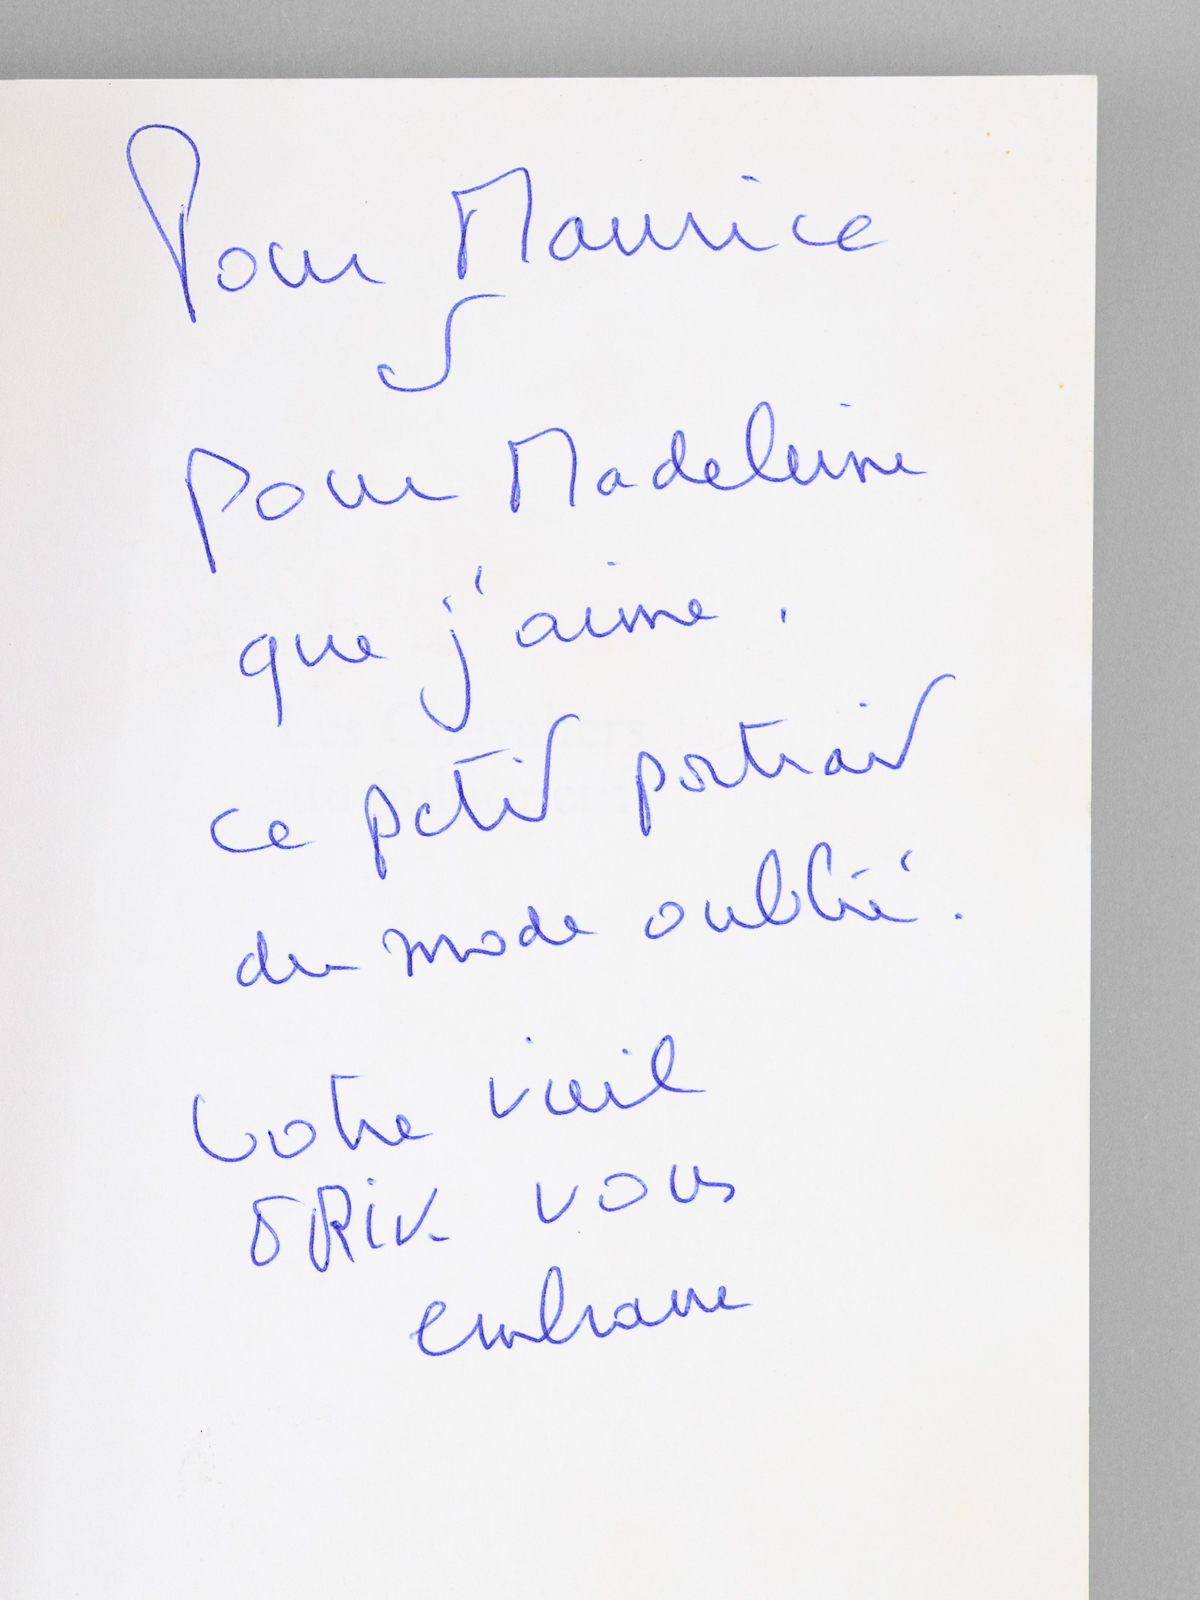 Pour Maurice
et
pour Madeleine
que j'aime.
ce petit portrait
du mode oublié.
Votre vieil
vous
embrasse